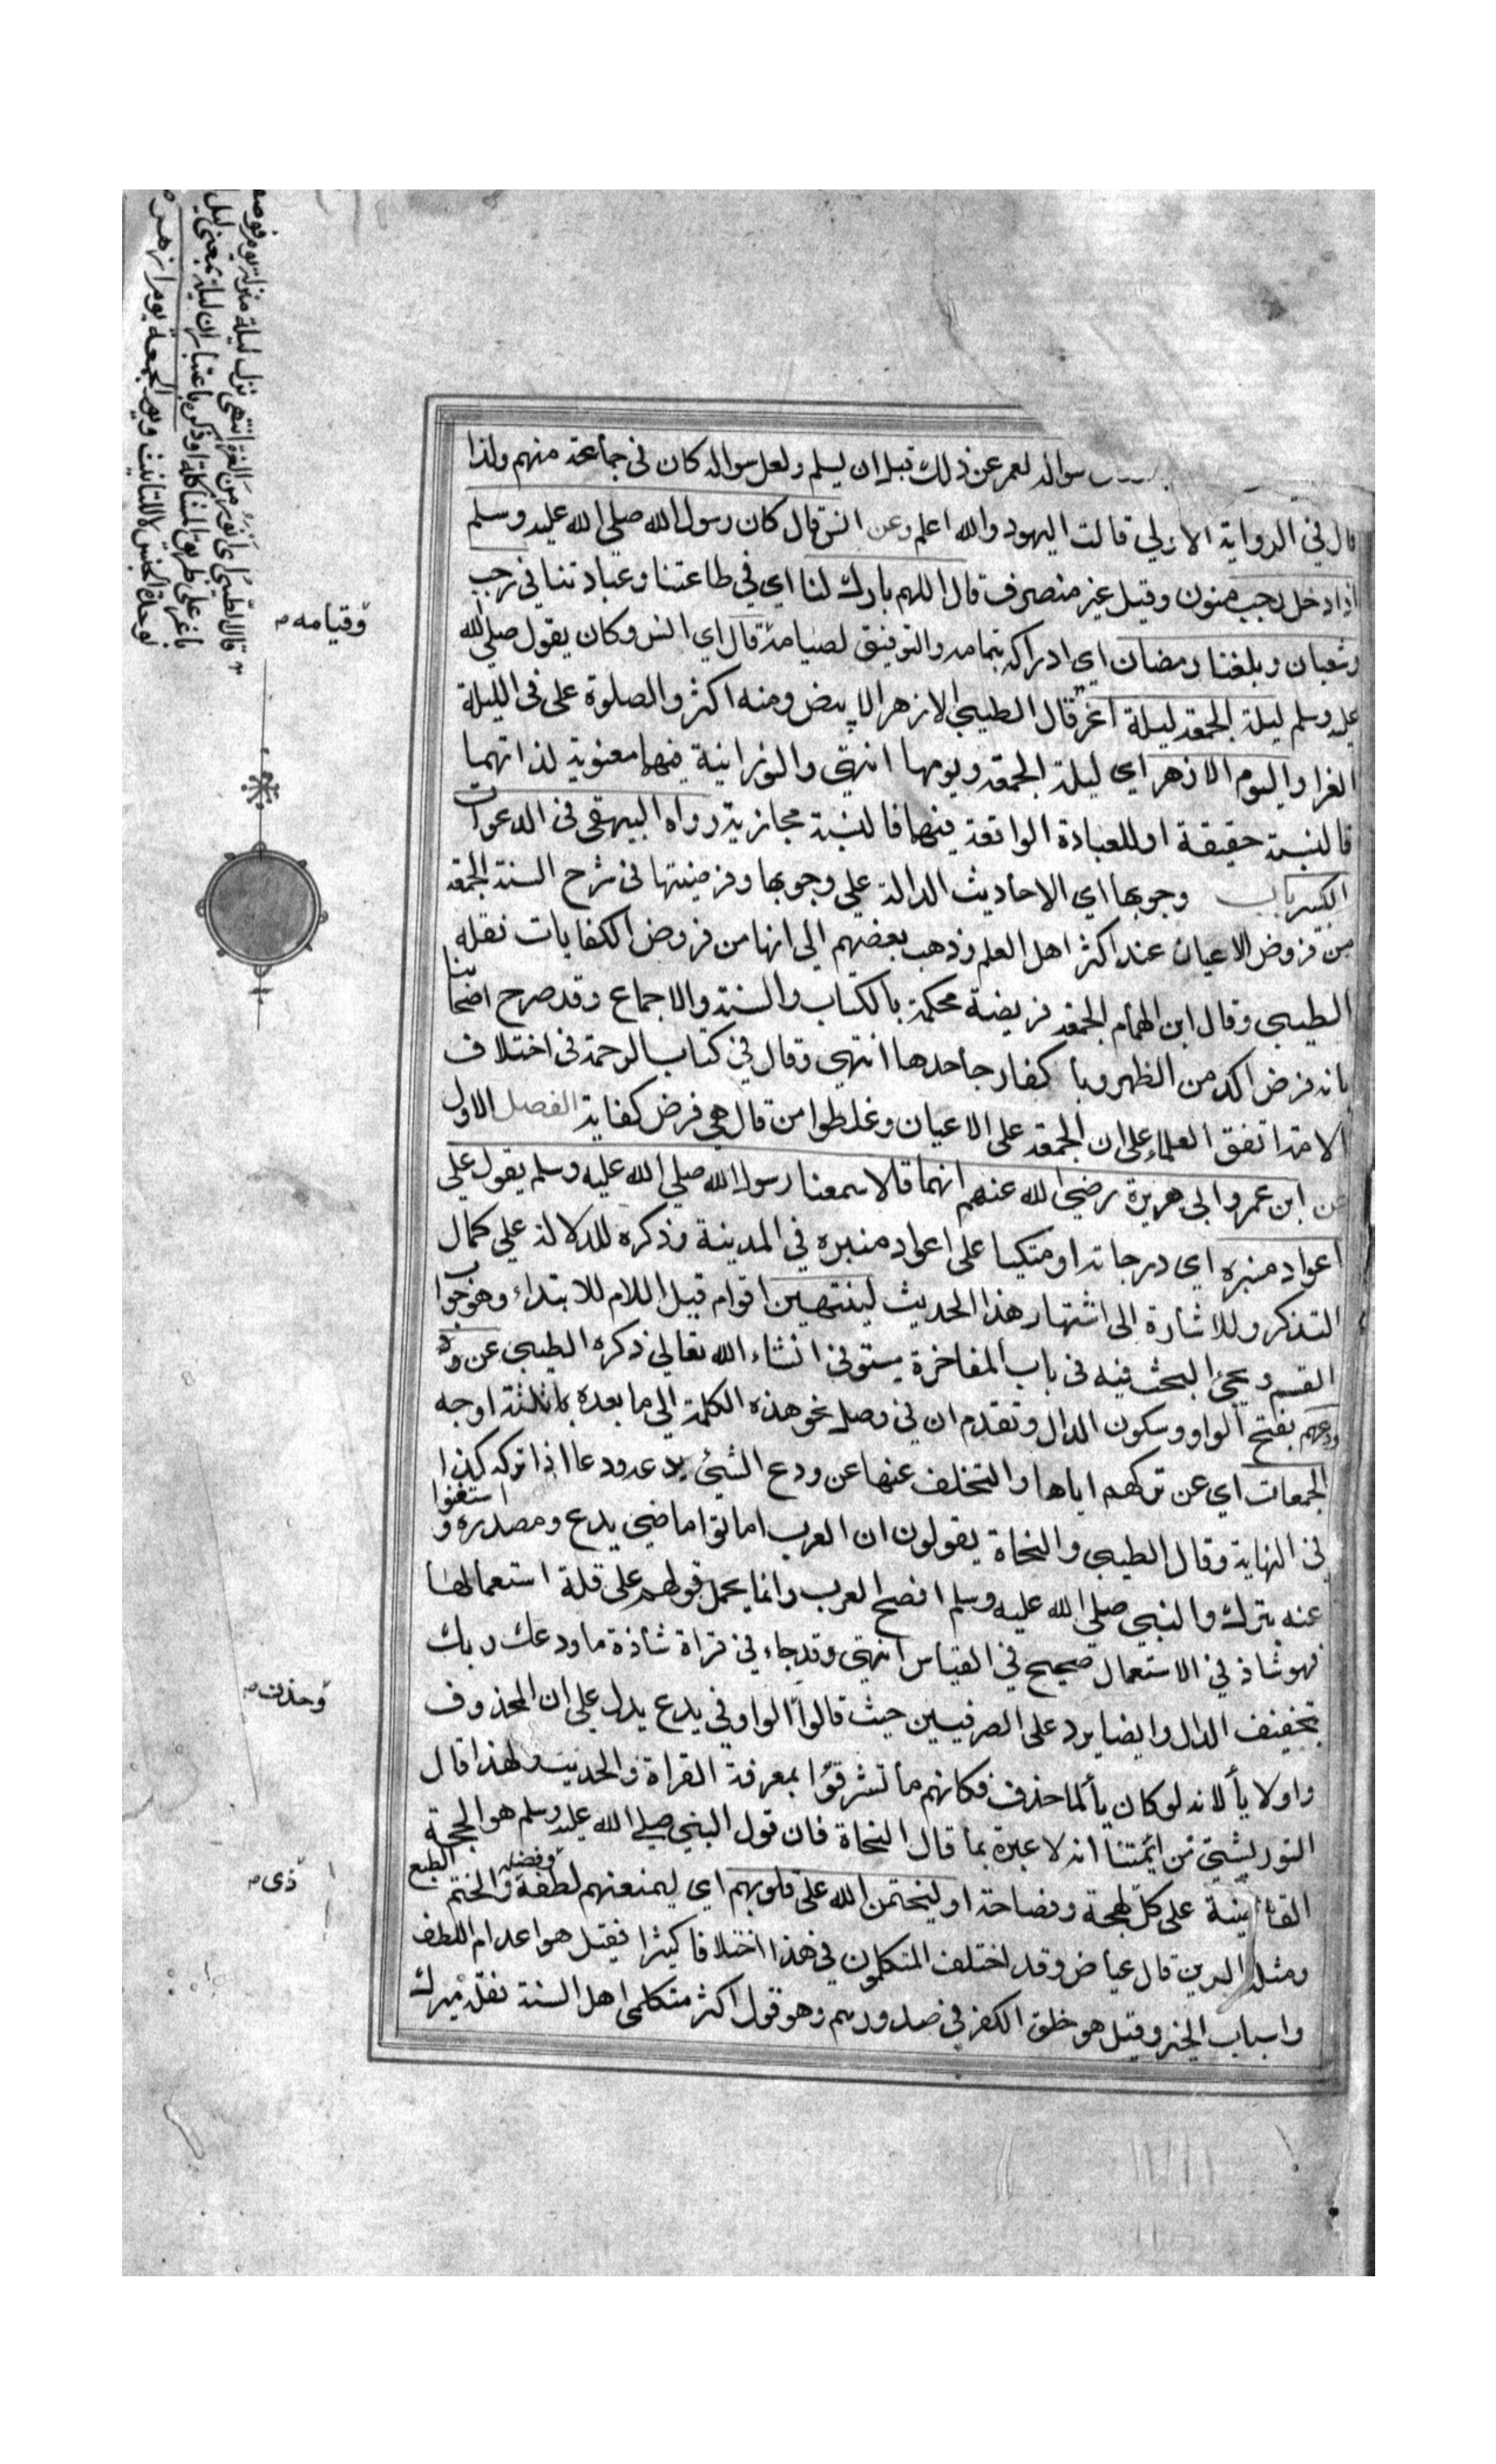 سواله لعمر عن ذلك قبل ان يسلم ولعل سواله كان في جماعة منهم ولذا
قال في الرواية الاولي قالت اليهود والله اعلم وعن انس قال كان رسول الله صلى الله عليه وسلم
اذا دخل رجب منون وقيل غير منصرف قال اللهم بارك لنا اي في طاعتنا وعبادتنا في رجب
وشعبان وبلغنا رمضان اي ادراكه بتمامه والتوفيق لصيامه قال اي انس وكان يقول صلى الله
عليه وسلم ليلة الجمعة ليلة اغر قال الطيبي الازهر الابيض ومنه اكثروا الصلوة على في الليلة
الغرا واليوم الازهر اي ليلة الجمعة ويومها انتهى والنورانية فيهما معنوية لذاتهما
فالنسبة حقيقة او للعبادة الواقعة فيهما فالنسبة مجازية رواه البيهقي في الدعوات
الكبير باب وجوبها اي الاحاديث الدالة علي وجوبها وفرضيتها في شرح السنة الجمعة
من فروض الاعيان عند اكثر اهل العلم وذهب بعضهم الي انها من فروض الكفايات نقله
الطيبي وقال ابن الهمام الجمعة فريضة محكمة بالكتاب والسنة والاجماع وقد صرح اصحابنا
بانه فرض اكد من الظهر وباكفار جاحدها انتهي وقال في كتاب الرحمة في اختلاف
الامة اتفق العلماء على ان الجمعة على الاعيان وغلطوا من قال هي فرض كفاية الفصل الاول
عن ابن عمر وابي هريرة رضي الله عنهم انهما قالا سمعنا رسول الله صلي الله عليه وسلم يقول علي
اعواد منبره اي درجاته او متكيا على اعواد منبره في المدينة وذكره للدلالة علي كمال
التذكر وللاشارة الى اشتهار هذا الحديث لينتهين اقوام قيل اللام للابتداء وهو جواب
القسم ويجيئ البحث فيه في باب المفاخرة يستوفى انشاء الله تعالي ذكره الطيبي عن ود
ودعهم بفتح الواو وسكون الدال وتقدم ان في وصل نحو هذه الكلمة الي ما بعده ثلثة اوجه
الجمعات اي عن تركهم اياها والتخلف عنها عن ودع الشئ يدعه ودعا اذا تركه كذا
في النهاية وقال الطيبي والنحاة يقولون ان العرب اماتوا ماضي يدع ومصدره واستغنوا
عنه بترك والنبي صلي الله عليه وسلم افصح العرب وانما يحمل قولهم على قلة استعمالها
فهو شاذ في الاستعمال صحيح في القياس انتهى وقد جاء في قراة شاذة ما ودعك ربك
بتخفيف الدال وايضا يرد على الصرفيين حيث قالوا الواو في يدع يدل علي ان المحذوف
واو لا يأ لانه لو كان يأ لما حذف فكانهم ما تشرفوا بمعرفة القراة والحديث ولهذا قال
التوربشتي من ائمتنا انه لا عبرة بما قال النحاة فان قول النبي صلي الله عليه وسلم هو الحجة
القاضية على كل لهجة وفصاحة او ليختمن الله على قلوبهم اي ليمنعنهم لطفه وفضله والختم الطبع
ومثله الرين قال عياض وقد اختلف المتكلمون في هذا اختلافا كثيرا فقيل هو اعدام اللطف
واسباب الخير وقيل هو خلق الكفر في صدورهم وهو قول اكثر متكلمي اهل السنة نقله ميرك
وقيامه
وحذف
ذي
قال الطيبي اي انور من الغرة انتهى نزل ليلة منزلة يوم فوصف
باغر على طريق المشاكلة او ذكره باعتبار ان ليلة بمعنى ليل
لوحدة الجنس لا للتانيث ويوم الجمعة يوم ازهر